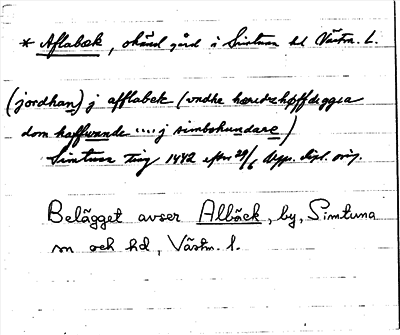 * Aflabæk, okänd gård i Simtuna hd Västm. l.
(jordhan) j afflabek (vndhe hæredzhøffdeggia
dom haffwande .... j simbohundare)
Simtuna ting 1442 efter 29/6 Upps. dipl. orig.
Belägget avser Albäck, by, Simtuna
sn och hd, Västm. l.